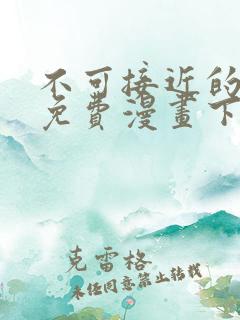 不可接近的
免費漫畫下
克雷格
未任同意禁止转载